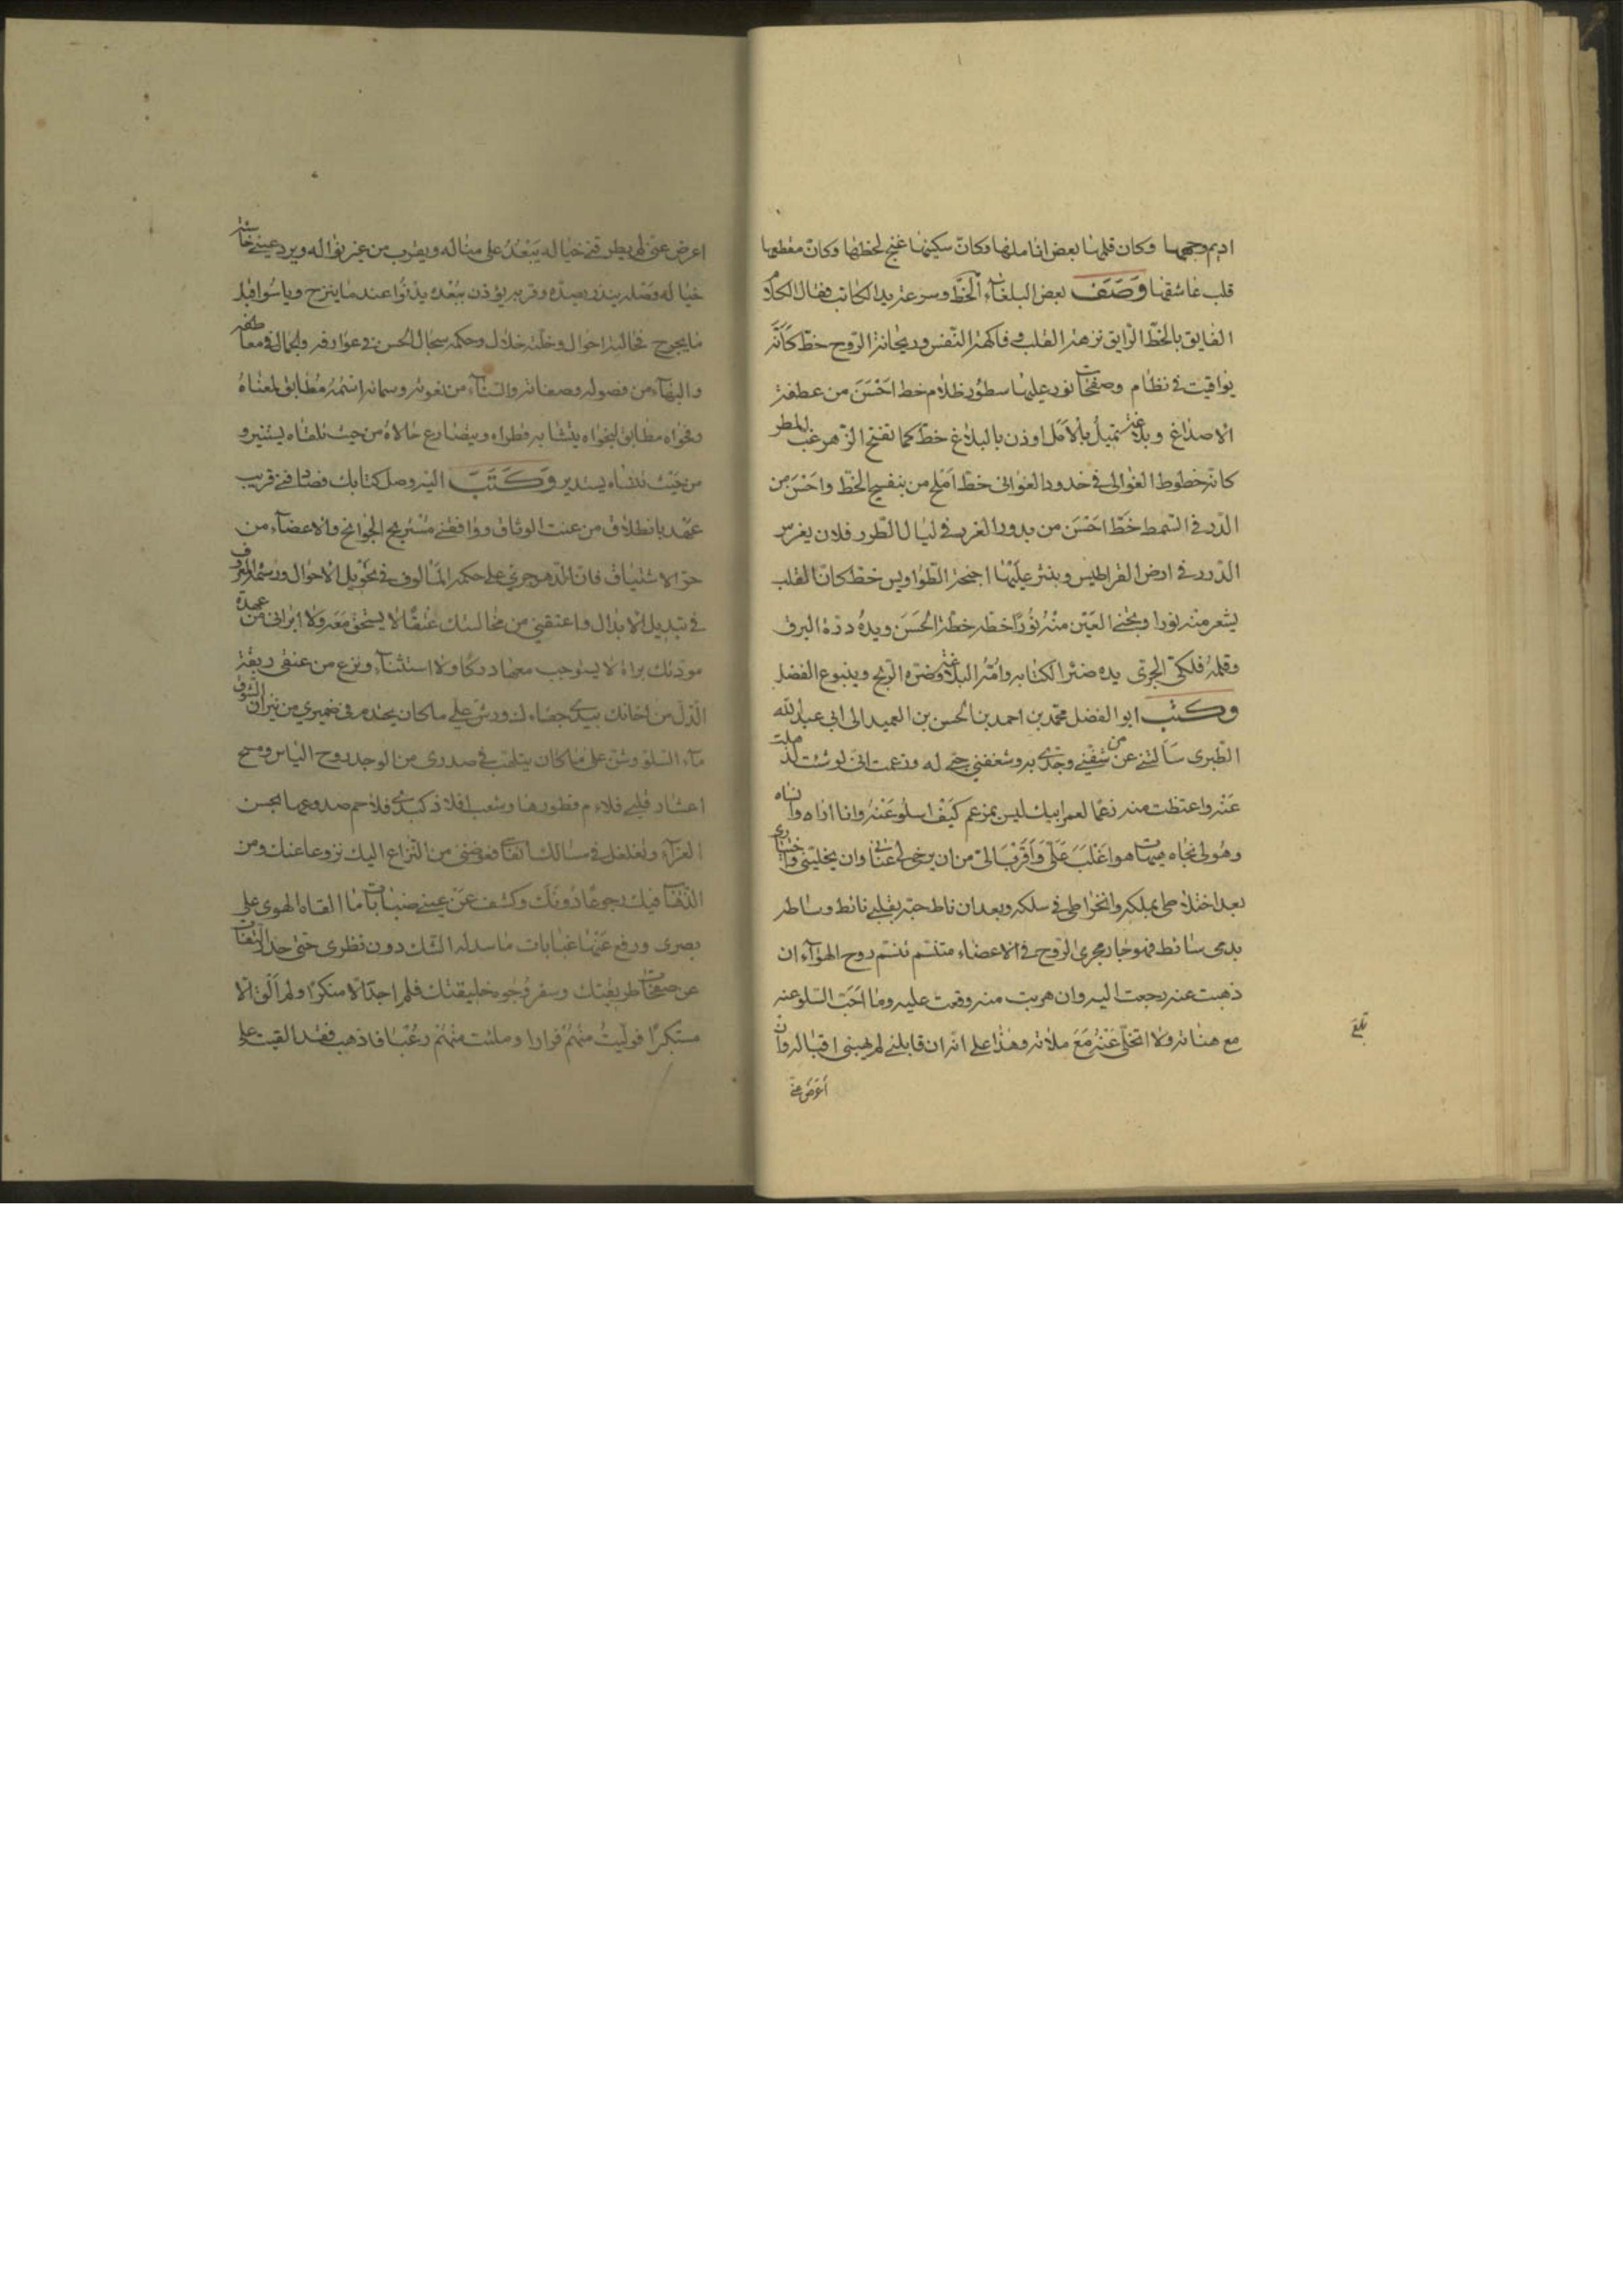 اديم وجهها وكان قلمها بعض اناملها وكانّ سكينها غنج لحظها وكانّ مقطعها
قلب عاشقها وَصَفَ بعض البلغاء الخطّ وسرعة يد الكاتب فقال الكلام
الفايق بالخطّ الرّايق نزهة القلب وفاكهة النّفس وريحانة الرّوح خطّ كَأنّه
يواقيت في نظام وصفحات نور عليها سطور ظلام خط احْسَنَ من عطفة
الاصداغ وبلاغة كما تفتح الزّهر غبّ المطر
كانه خطوط الغوالى في خدود الغوانى خطّ امَلح من بنفسج الخطّ واحْسَنَ من
الدّر في السّمط خَطّ احْسَنَ من بدور الغرر في ليال الطّرر فلان يغرس
الدّرر في ارض القراطيس وينثر عليْها اجنحة الطّواويس خطّ كانّ القلب
يشعر منه نورا ويجنى العَيْن منْهُ نُورًا خطّه خطّة الحُسَن ويدهُ درّة البرق
وقلمهُ فلكىّ الجرى يده ضرّة الكتابه وامُّ البلاغة وضرّة الرّيح وينبوع الفضل
وكتب ابو الفضل محمّد بن احمد بن الحُسن بن العميد الى ابى عبد الله
الطّبرى سَاَلتنى عن من شفّنى وجْدى به وشغفنى حبّى له وزعمت انّى لو شئت لذهلت
عَنْه واعتظت منه زعمًا لعمر ابيك ليس بمزعم كَيْفَ اسلُو عَنْهُ وانا اراه وانساه
وهُو لى تجاه هيهات هوا غْلَبَ عَلَىّ وَاَقرَبُ الىّ من ان يرخى لى عنانى وان يخلينى واختيارى
بعد اختلاطى بملكه وانخراطى في سلكه وبعد ان ناط حبّه بقلبى نائط وساطه
بدمى سائط فهو جار مجرى الرّوح في الاعضاء متنسّم تنسّم روح الهوآء ان
ذهبت عنه رجعت اليه وان هربت منه وقعت عليه وما احَبّ السّلو عنه
مع هناته ولا اتخلّى عَنْهُ مَعَ ملاته وهٰذا على انّه ان قابلنى لم يهبنى اقباله وان
اَعرَضَ عنّى
بلغ
اعرض عنّى لم يطرقنى خياله يَبْعُدُ على مناله ويقرب من غيرى نواله ويرد عينى خاسئة
خياله وَصْله ينذر بصدّه وقربه يؤذن ببُعْده يدنُوا عند ما ينزح وياسُوا قبل
ما يجرح فحالته احوال وخلّته خلال وحكمه سجال الحسن في عوارفه والجمال في معاطفه
والبهآء من فصوله وصفاته والسنآء من نعوته وسماته اسْمُهُ مُطابق لمعْناهُ
وفحواه مطابق لنجواه يتشابه قطراه ويضارع حالاهُ من حيث تلقاه يستنير و
من حَيْث تنساه يستدير وَكَتَبَ اليْه وصل كتابك فصادفنى قريب
عهْد بانطلاق من عنت الوثاق ووافقنى مسْتريح الجوانح والاعضآء من
حرّ الاشتياق فانّ الدّهر جرى على حكمه المَالوف في تحوْيل الاحوال ورسْمه المعروف
في تبديل الابدال واعتقنى من مخالستك عتقًا لا يستحق مَعَه ولا ابرانى من عهدة
مودّتك براة لا يستوجب معها دركًا ولا استثنآء ونزع من عنقى ربقة
الذّل من اخائك بيدى جفاء له ورشّ على ما كان يحتدم في ضميرى من نيران الشّوق
مآء السّلو وشنّ على ما كان يتلهّب في صدرى من الوجد روح الياس ومسح
اعشار قلبى فلاءم فطورها وشعب افلاذ كبدى فلاحم صدوعها بحسن
العزآء وتغلغل في مسالك فعوّضنى من النّزاع اليك نزوعا عنك ومن
فيك رجوعًا دُونَكَ وكشف عَنْ عينى ضبابات ما القاه الهوى على
بصرى ورفع عَنْها غيابات ما سدله الشّك دون نظرى حتى حدر النقاب
عن صفحات طريقتك وسفر وُجُوه خليقتك فلم اجد الّا منكرًا ولم اَلَق الّا
مستكبرًا فولّيتُ منْهُمْ فرارا وملئت منْهُمْ رُعْبًا فاذهب فقد القيت على